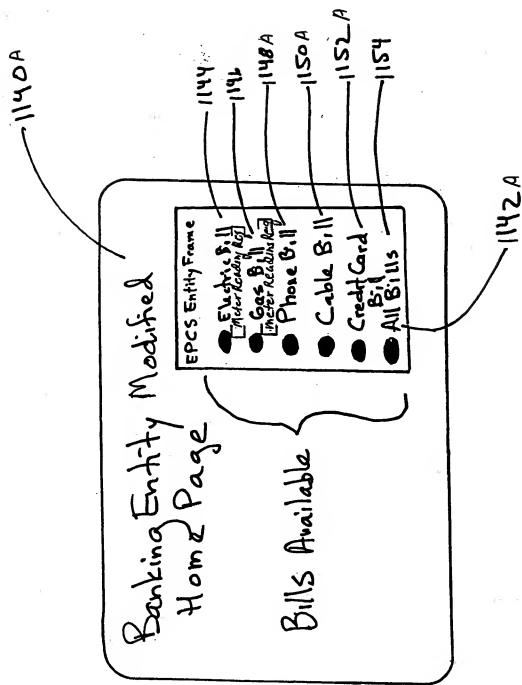 1140A
Banking Entity Modified
Home Page
EPCS Entity Frame
Electric Bill
Meter Reading Req
Gas Bill
Meter Reading Req
Phone Bill
Cable Bill
Credit Card
Bill
All Bills
Bills Available
1144
1146
1148A
1150A
1152A
1154
1142A